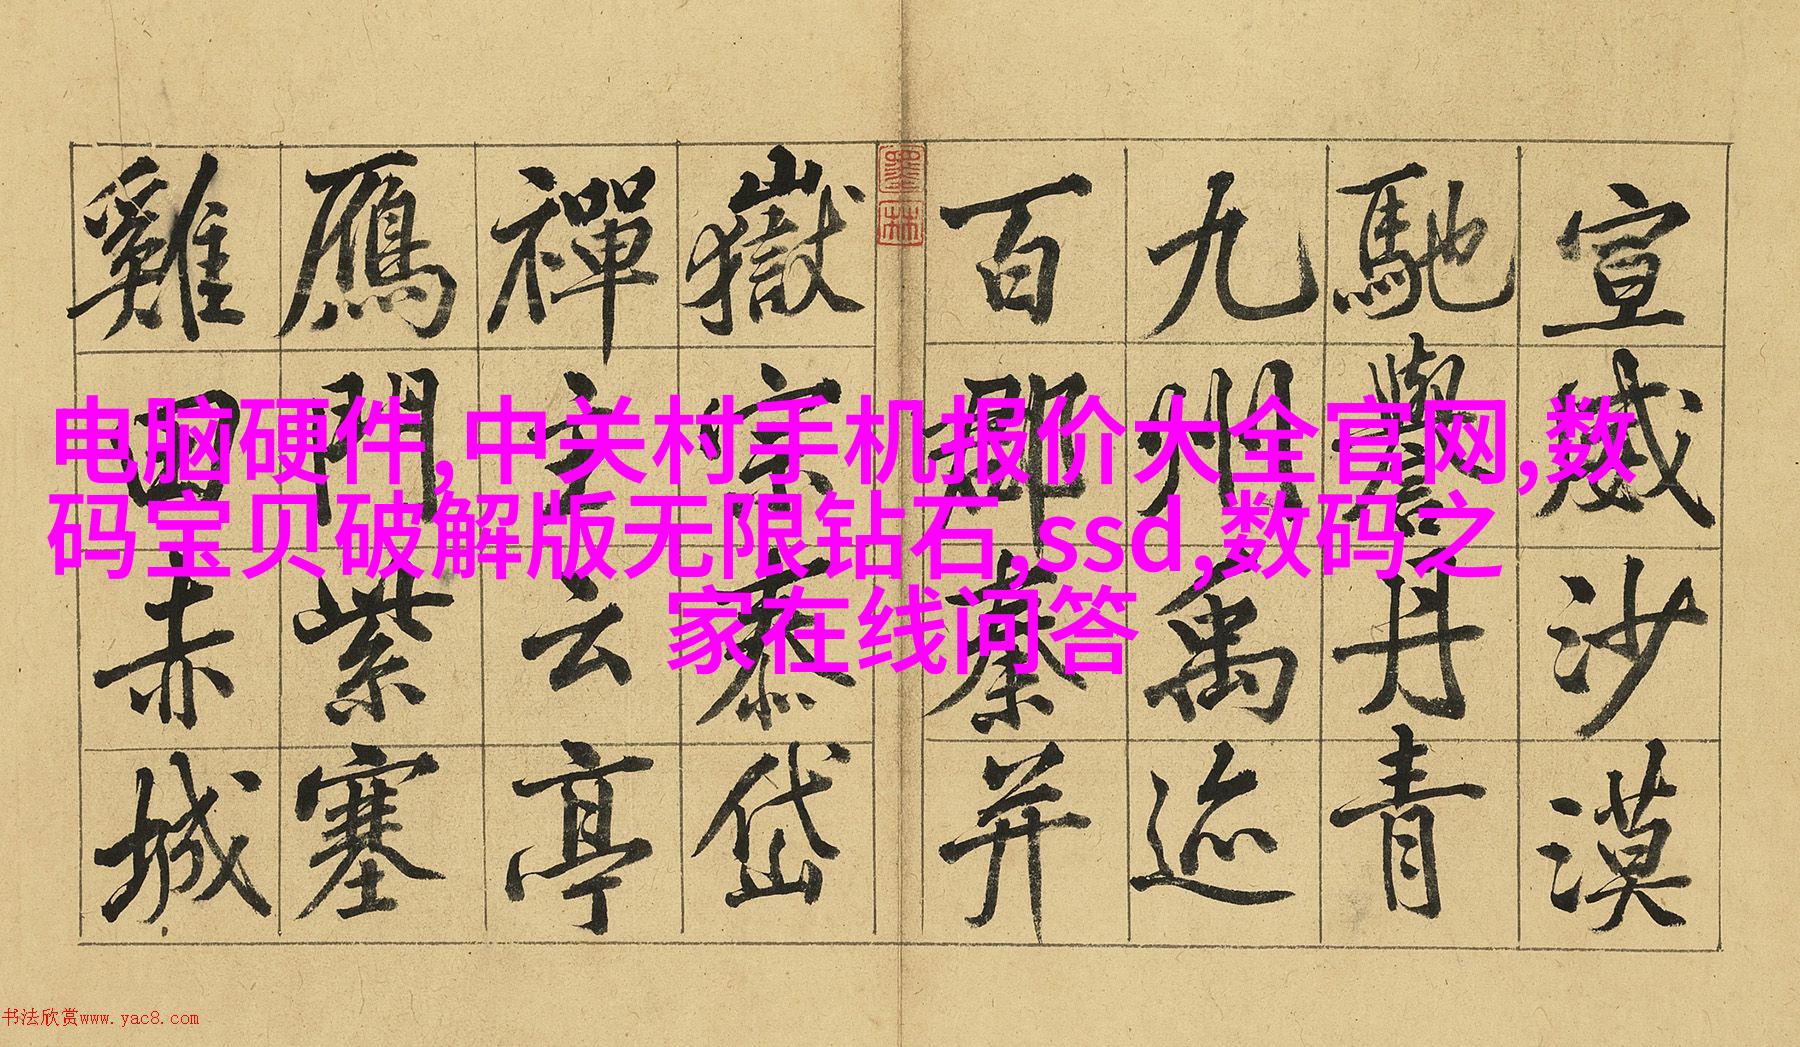 电脑硬件,中关村手机报价大全官网,数
码宝贝破解版无限钻石,ssd,数码之
家在线问答
宣威沙漠
馳譽丹青
九州禹迹
百郡秦并
墨林
嶽宗泰岱
禪主云亭
鴈門紫塞
雞田赤城
书法欣赏www.yac8.com